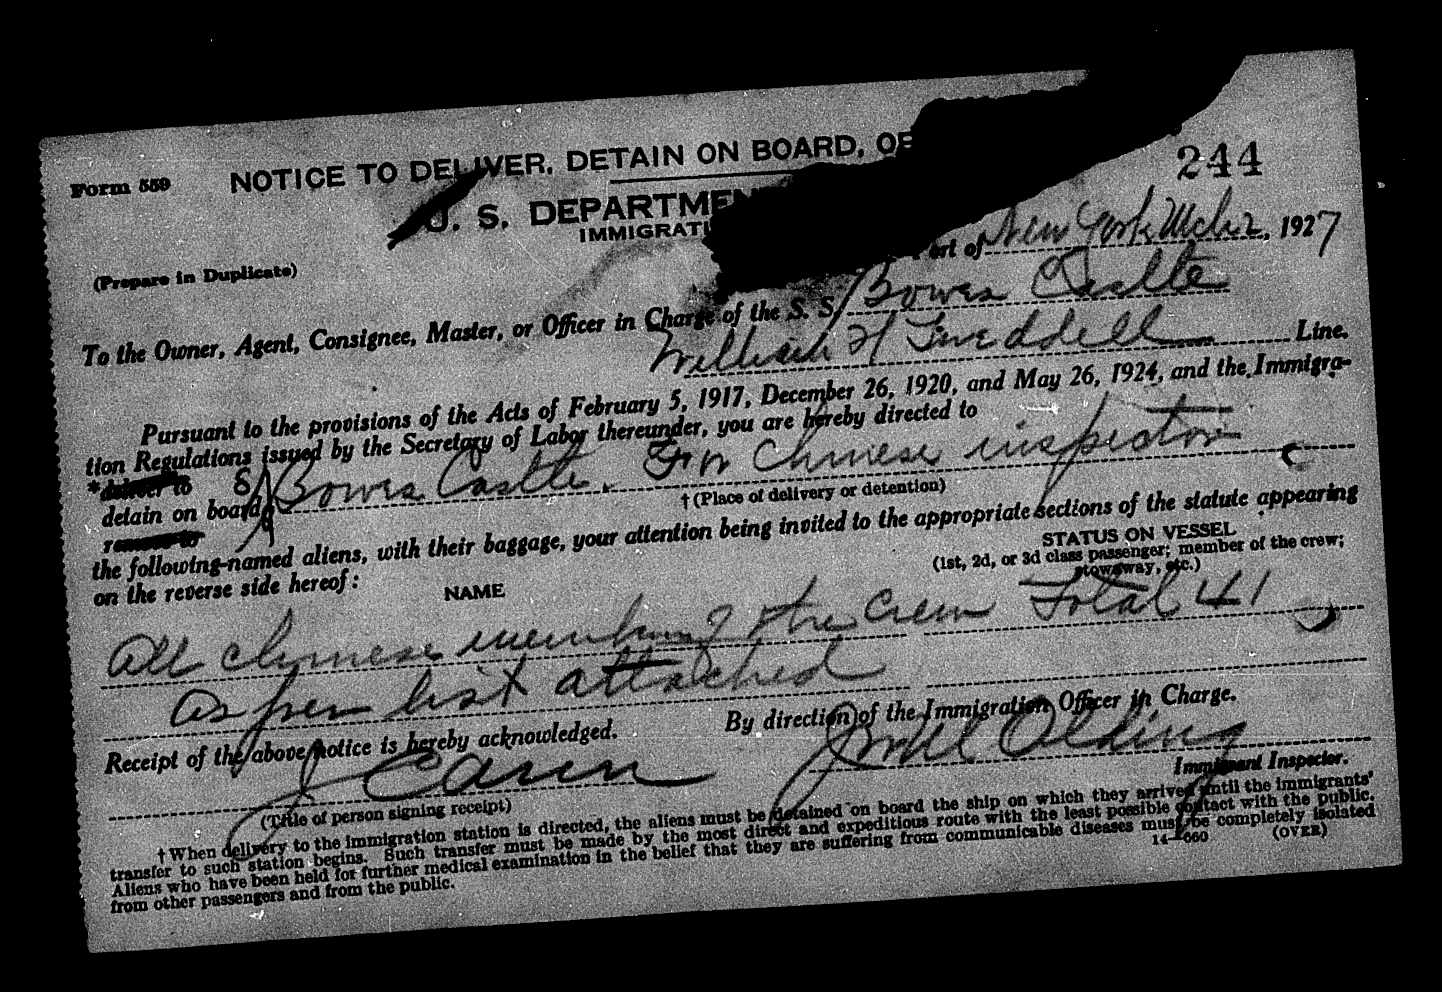 Form 559
NOTICE TO DELIVER, DETAIN ON BOARD, OR
244
U. S. DEPARTMEN
IMMIGRATI
Port of New York Mch 2, 1927
(Prepare in Duplicate)
To the Owner, Agent, Consignee, Master, or Officer in Charge of the S. S. Bowes Castle
William H Tweddell Line.
Pursuant to the provisions of the Acts of February 5, 1917, December 26, 1920, and May 26, 1924, and the Immigra-
tion Regulations issued by the Secretary of Labor thereunder, you are hereby directed to
*deliver to
detain on board S/S Bowes Castle. For Chinese inspector
remove to
†(Place of delivery or detention)
the following-named aliens, with their baggage, your attention being invited to the appropriate sections of the statute appearing
on the reverse side hereof:
STATUS ON VESSEL
(1st, 2d, or 3d class passenger; member of the crew;
stowaway, etc.)
NAME
All Chinese members of the Crew Total 41
as per list attached
Receipt of the above notice is hereby acknowledged.
By direction of the Immigration Officer in Charge.
Immigrant Inspector.
(Title of person signing receipt)
†When delivery to the immigration station is directed, the aliens must be detained on board the ship on which they arrived until the immigrants'
transfer to such station begins. Such transfer must be made by the most direct and expeditious route with the least possible contact with the public.
Aliens who have been held for further medical examination in the belief that they are suffering from communicable diseases must be completely isolated
from other passengers and from the public.
14—660
(OVER)